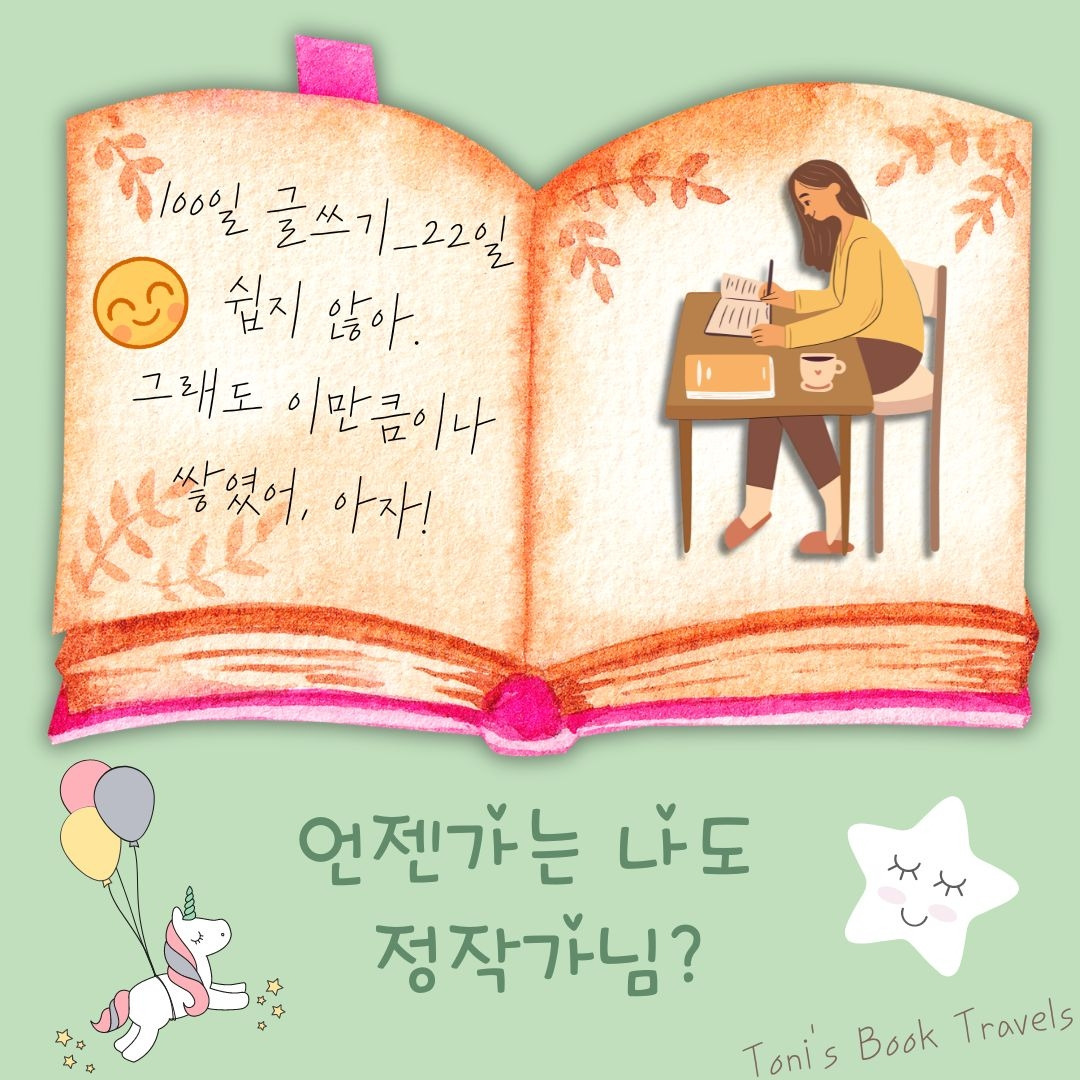 100일 글쓰기_22일
쉽지 않아.
그래도 이만큼이나
쌓였어, 아자!
언젠가는 나도
정작가님?
Toni's Book Travels